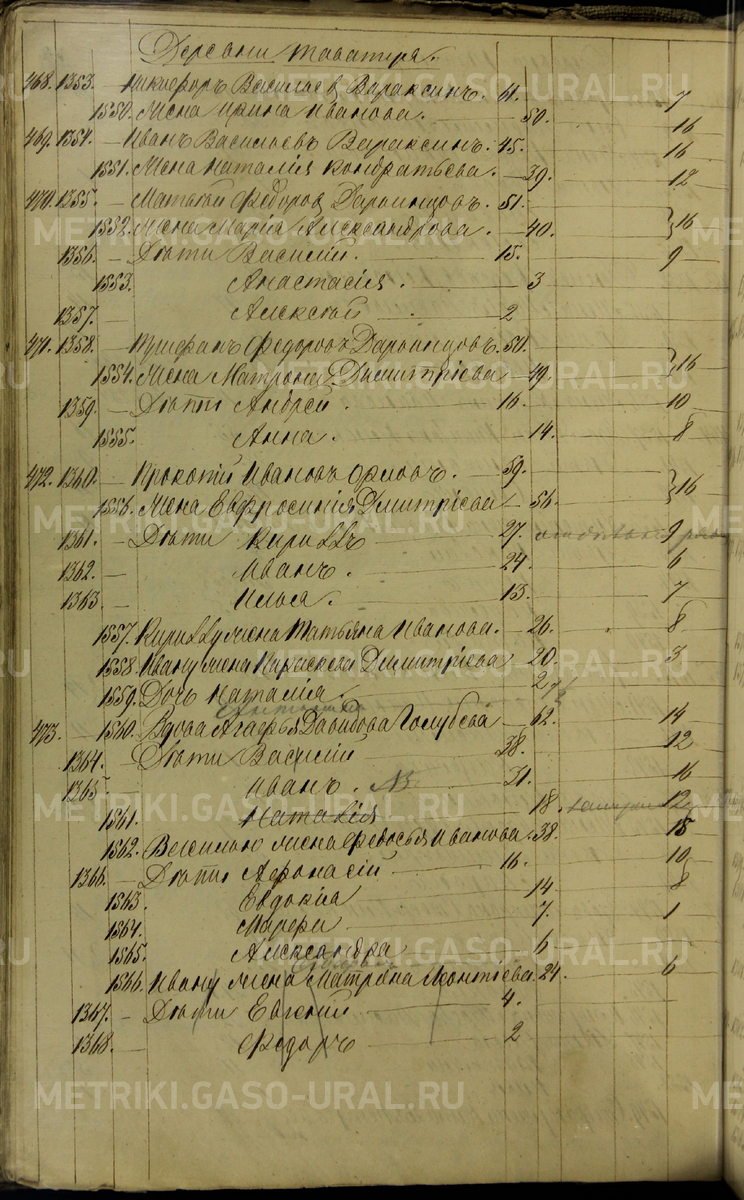 Деревни Таватуя.
468. 1353. — Никифоръ Васильев Вараксинъ. 61. 7
1550. Жена Ирина Иванова. 50. 16
469. 1354. — Иванъ Васильевъ Вараксинъ. 45. 16
1551. Жена Наталія Кондратьева. 39. 12
470. 1355. — Матвей Федоров 51.
1552. Жена Марія Александрова. 40. } 16
1356. — Дѣти Василий. 15. 9
1553. Анастасія. 3
1357. — Алексѣй. 2
471. 1358. — Федоровъ 50.
1554. Жена Матрона Димитріева 49. } 16
1359. — Дѣти Андрей. 16. 10
1555. Анна. 14. 8
472. 1360. — Прокопій Ивановъ Орловъ. 59.
1556. Жена Евфросинія Димитріева 56. } 16
1361. — Дѣти Кириллъ 27. 9
1362. — Иванъ. 24. 6
1363. — Илья. 13. 7
1557. Кириллу жена Татьяна Иванова. 26. 8
1558. Ивану жена Параскева Димитріева 20. 3
1559. Дочь Наталія. 2
473. — 1560. Вдова Агафья Давидова Голубева 62. 14
1364. — Дѣти Василій 38. 12
1365. Иванъ. 31. 16
1561. Наталія 18. 12
1562. Василью жена Федосья Иванова. 38. 15
1366. — Дѣти Афонасій 16. 10
1563. Евдокія 14. 8
1564. Марфа 7. 1
1565. Александра 6
1566. Ивану жена Матрона Леонтіева. 24. 6
1367. — Дѣти Евгений 4.
1368. — Федоръ 2
METRIKI.GASO-URAL.RU